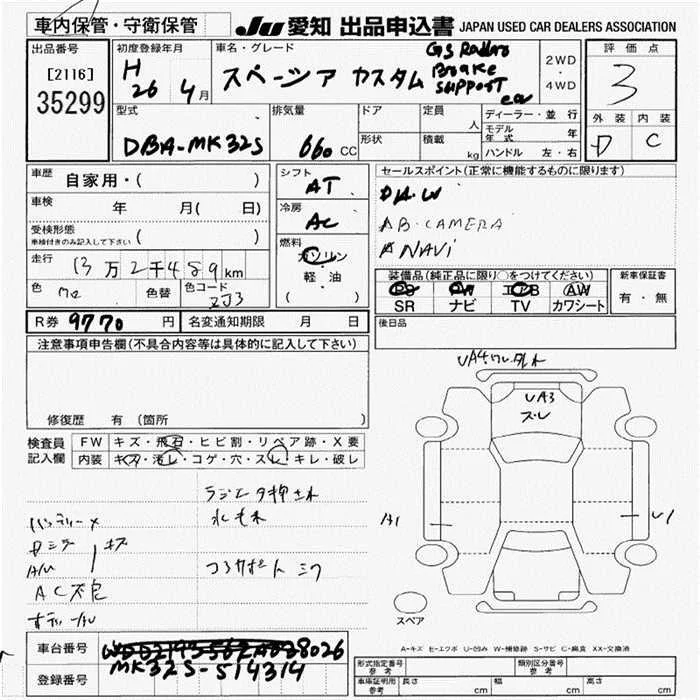 車内保管・守衛保管
JU 愛知 出品申込書 JAPAN USED CAR DEALERS ASSOCIATION
出品番号
[2116]
35299
初度登録年月
H
26 4月
車名・グレード
スペーシア カスタム
GS
Brake
support
2WD
・
4WD
評価点
3
外装 内装
D C
型式
DBA-MK32S
排気量
660 CC
ドア
形状
定員
人
積載
kg
ディーラー・並行
モデル年式 年
ハンドル 左・右
車歴
自家用・( )
車検
年 月( 日)
受検形態
車検付きのみ記入して下さい ( )
走行
13万2千489km
色
色替
色コード
ZJ3
シフト
AT
冷房
AC
燃料
ガソリン
・
軽・油
( )
セールスポイント(正常に機能するものに限ります)
AB・CAMERA
NAVi
装備品(純正品に限り○をつけてください)
PS PW エアB AW
SR ナビ TV カワシート
新車保証書
有・無
R券 9770 円
名変通知期限 月 日
後日品
注意事項申告欄(不具合内容等は具体的に記入して下さい)
修復歴 有 (箇所 )
検査員
記入欄
FW キズ・飛石・ヒビ割・リペア跡・X要
内装 キズ・汚レ・コゲ・穴・スレ・キレ・破レ
ラジエタ押され
バッテリーx
A/W
キズ
AC不良
UA3
ズレ
A1
U1
スペア
A-キズ E-エクボ U-凹み W-補修跡 S-サビ C-腐食 XX-交換済
車台番号
MK32S-514314
登録番号
形式指定番号
参考
類別区分番号
参考
車庫証明用
参考
長さ cm
幅 cm
高さ cm